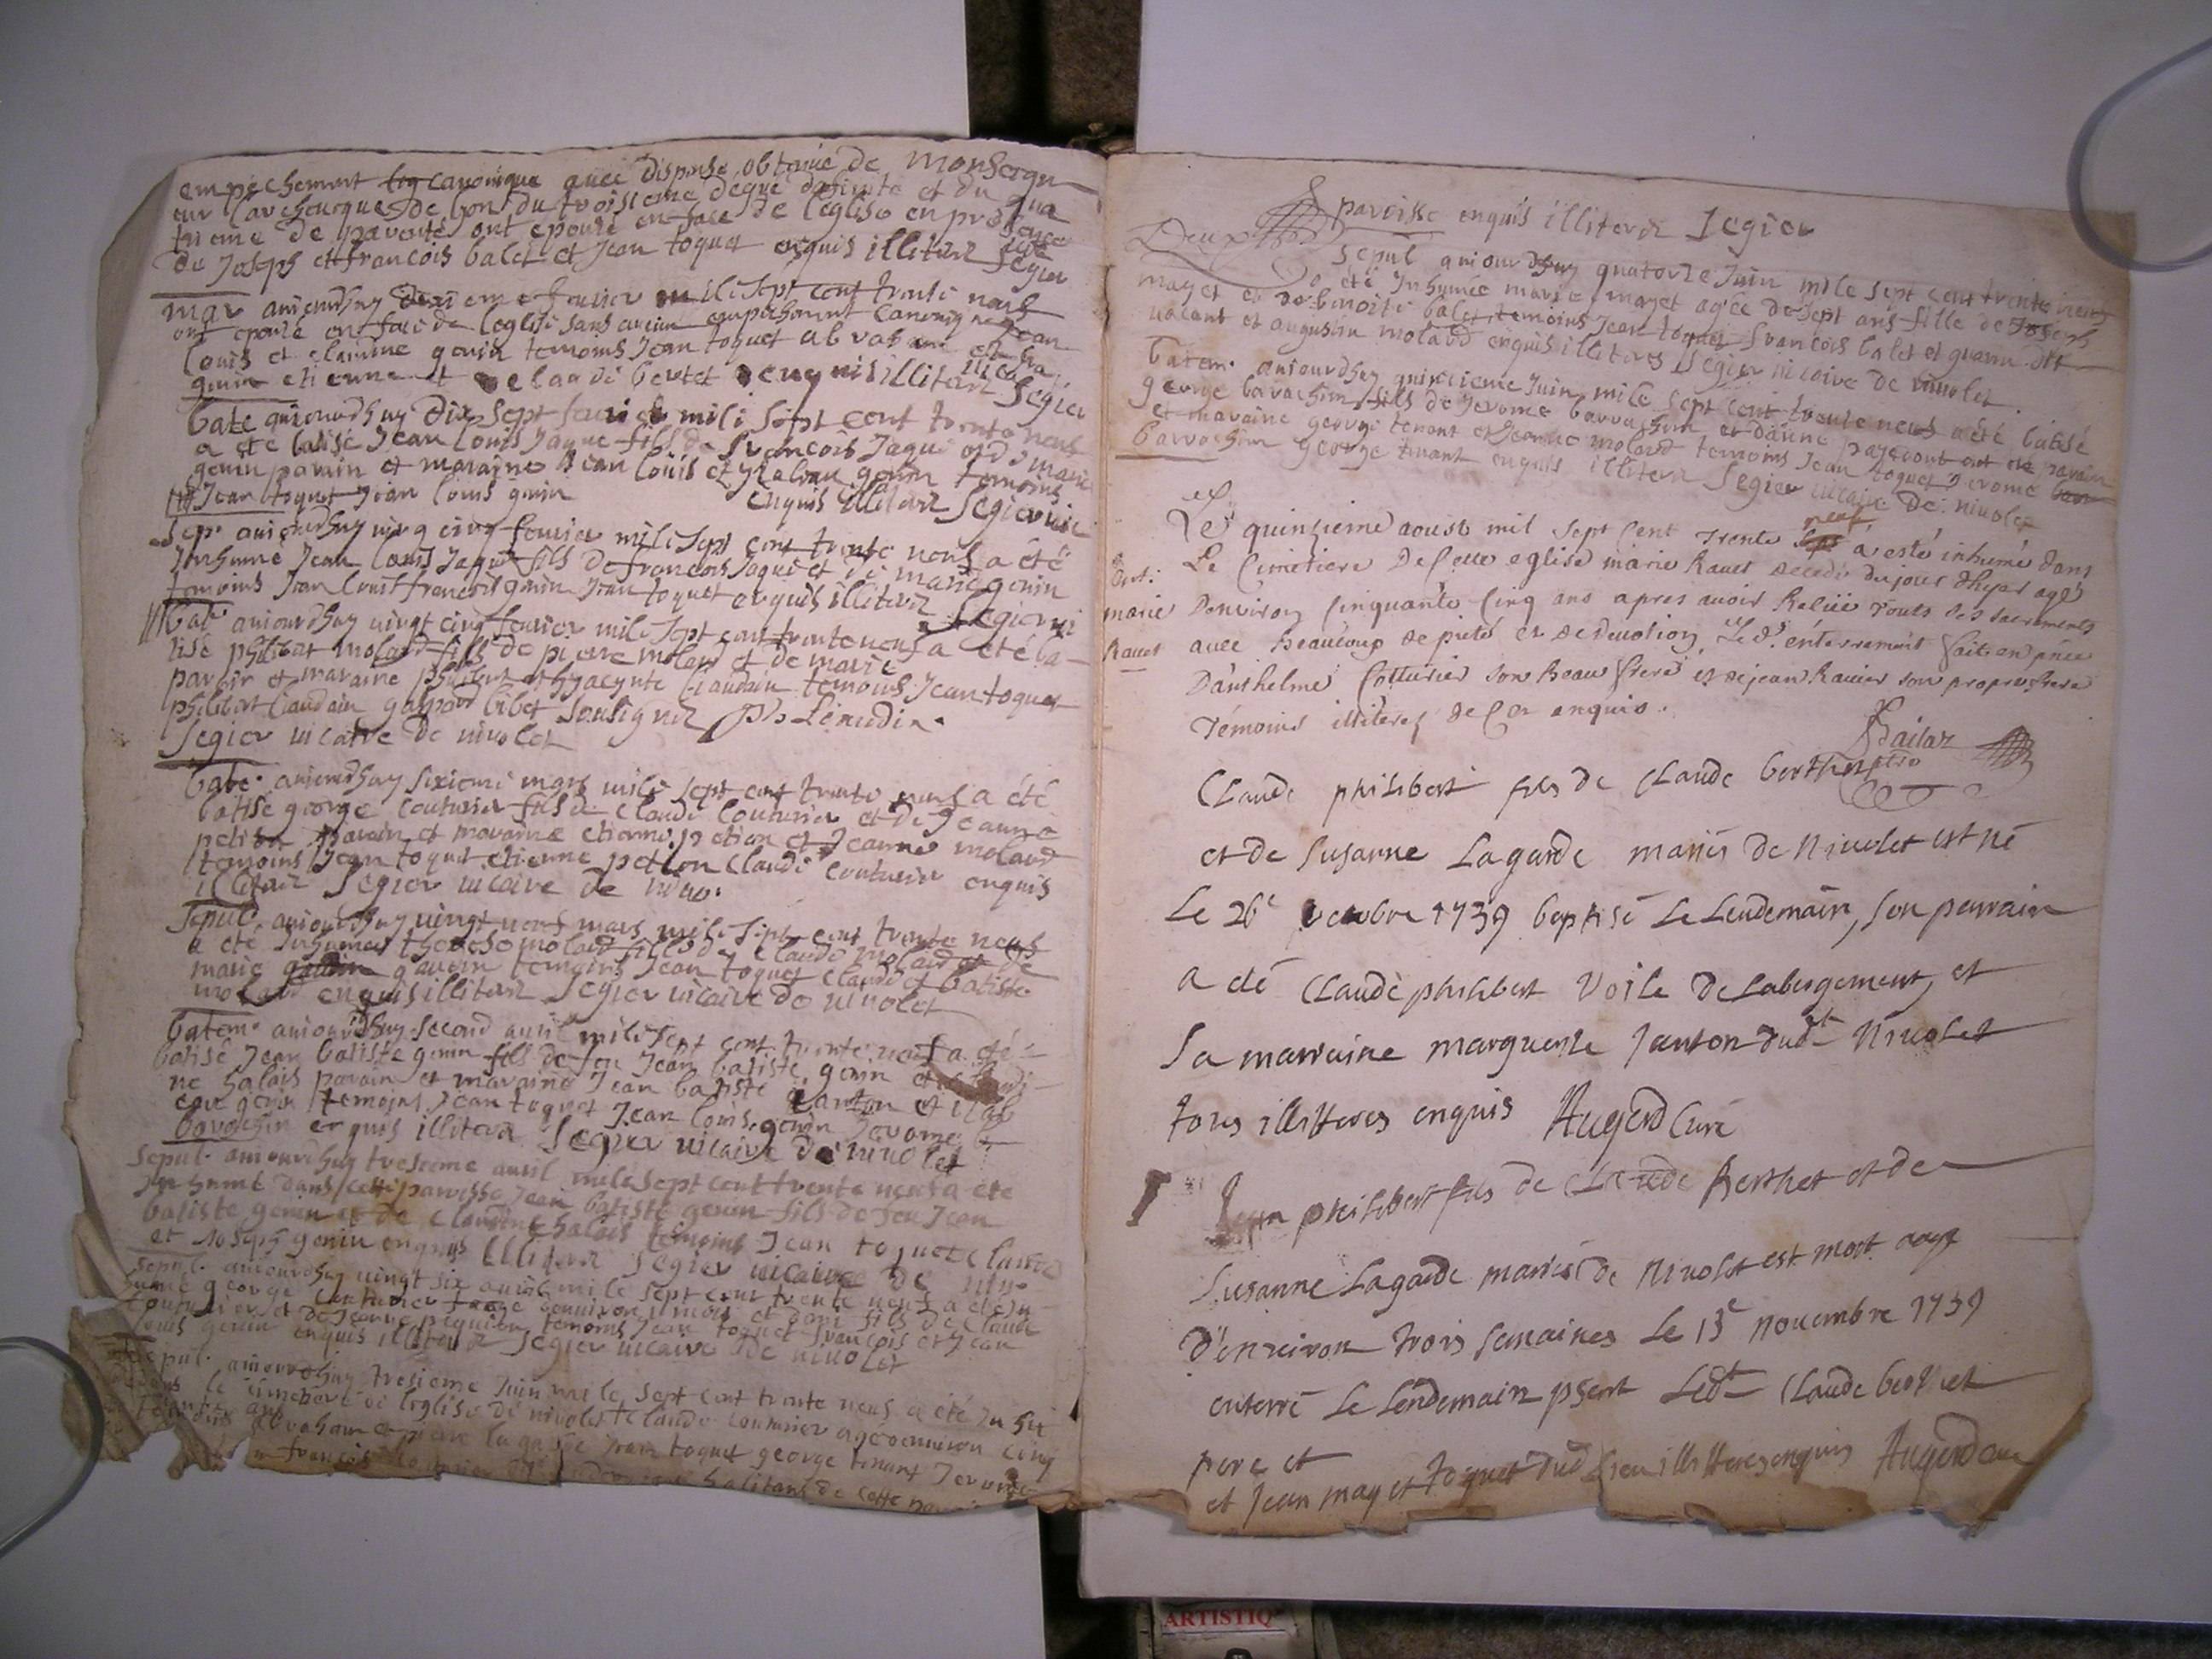 empechement canonique avec dispense obtenue de Monseign
eur l'archevesque de lyon du troisieme degré et du qua
trieme de parenté ont epousé en face de l'eglise en presence
de Joseph et francois balet et Jean toquet enquis illiterez Segier
mar aujourdhuy fevrier mile sept cent trente neuf
ont epousé en face de l'eglise sans aucun empechement canonique Jean
louis et claudine genin temoins Jean toquet
genin etienne et claude bertet enquis illiterez Segier
bate aujourdhuy dix sept fevrier mile sept cent trente neuf
a eté batisé Jean louis Jaque fils de francois Jaque et de marie
genin parain et maraine Jean louis et genin temoins
Jean toquet Jean louis genin enquis illiterez Segier vic
Sep. aujourdhuy ving cinq fevrier mile sept cent trente neuf a été
Inhumé Jean louis Jaque fils de francois Jaque et de marie genin
temoins Jean louis francois genin Jean toquet enquis illiterez Segier vi
bat aujourdhuy vingt cinq fevrier mile sept cent trente neuf a eté ba
tisé philibert molard fils de pierre molard et de marie
parain et maraine philibert et hyacynte Claudain temoins Jean toquet
philibert Claudain gaspard bibet soussignez
Segier vicaire de nivolet
bate. aujourdhuy sixieme mars mile sept cent trente neuf a été
batisé george couturier fils de claude couturier et de Jeanne
petion parain et maraine etienne petion et Jeanne molard
temoins Jean toquet etienne petion Claude couturier enquis
illiterez Segier vicaire de nivo.
Sepul. aujourdhuy vingt neuf mars mile sept cent trente neuf
a eté Inhumée therese molard fille de claude molard et de
marie temoins Jean toquet claude et batiste
molard enquis illiterez Segier vicaire de nivolet
batem. aujourdhuy second avril mile sept cent trente neuf a eté
batisé Jean batiste genin fils de feu Jean batiste genin et
ne balais parain et maraine Jean batiste Janton et
genin temoins Jean toquet Jean louis genin Jerome
enquis illiterez Segier vicaire de nivolet
Sepul. aujourdhuy tresieme avril mile sept cent trente neuf a eté
Inhumé dans cette paroisse Jean batiste genin fils de feu Jean
batiste genin et de claudine balais temoins Jean toquet claude
et Joseph genin enquis illiterez Segier vicaire de nivo
Sepul. aujourdhuy vingt six avril mile sept cent trente neuf a eté In
humé george couturier fils de claude
couturier et de Jeanne temoins Jean toquet francois et Jean
louis genin enquis illiterez Segier vicaire de nivolet
Sepul. aujourdhuy tresieme Juin mile sept cent trente neuf a été Inhu
le cimetiere de l'eglise de nivolet claude couturier agé denviron cinq
Jean toquet george tenant Jerome
francois habitans de cette
paroisse enquis illiterez Segier
Deux
Sepul aujourdhuy quatorze Juin mile sept cent trente neuf
a été Inhumée marie mayet agée de sept ans fille de Joseph
mayet et de benoite balet temoins Jean toquet francois balet
vacant et augustin molard enquis illiteres Segier vicaire de nivolet.
batem. aujourdhuy quinzieme Juin mile sept cent trente neuf a été batisé
george fils de Jerome et danne parain
et maraine george tenant et Jeanne molard temoins Jean toquet Jerome
george tenant enquis illiterez Segier vicaire de nivolet
Le quinzieme aoust mil sept cent trente neuf a esté inhumé dans
Le Cimetiere de cette eglise marie Ravet decedé du jour dhyer agé
Ent. marie Ravet
denviron cinquante cinq ans apres avoir Reçüe touts ses sacrements
avec beaucoup de pieté et de devotion, Led. enterrement fait en pñce
Danthelme Coturier son beau frere et de jean Ravier son propre frere
Témoins illiteres de ce enquis.
Claude philibert fils de Claude berthet
et de Susanne Lagarde mariés de Nivolet est né
Le 26e octobre 1739 baptisé Le Lendemain, son parrain
a été Claude philibert Voile de Labergement, et
Sa marraine marguerite Janton dudt Nivolet
tous illitteres enquis Augerd Curé
philibert fils de Claude Berthet et de
Susanne Lagarde mariés de Nivolet est mort aagé
d'environ trois semaines Le 13e novembre 1739
enterré Le Lendemain pñent Ledt Claude berthet
pere et
et Jean mayet toquet dud Lieu illitteres enquis Augerd curé
ARTISTIQ